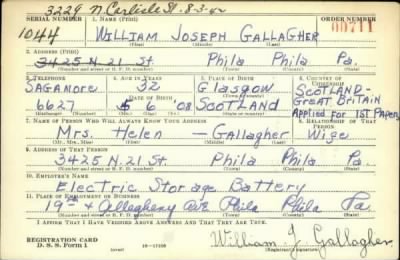 3229 N. Carlisle St. 8-3-42
SERIAL NUMBER 1. NAME (Print) ORDER NUMBER
1044 WILLIAM JOSEPH GALLAGHER
(First) (Middle) (Last)
2. ADDRESS (Print)
3425 N. 21 St Phila Phila Pa.
(Number and street or R. F. D. number) (Town) (County) (State)
3. TELEPHONE 4. AGE IN YEARS 5. PLACE OF BIRTH 6. COUNTRY OF CITIZENSHIP
SAGAMORE 32 Glasgow SCOTLAND-
DATE OF BIRTH GREAT BRITAIN
6627 6 '08 SCOTLAND Applied for 1ST Papers
(Exchange) (Number) (Mo.) (Day) (Yr.) (State or country)
7. NAME OF PERSON WHO WILL ALWAYS KNOW YOUR ADDRESS 8. RELATIONSHIP OF THAT PERSON
Mrs. Helen — Gallagher Wife
(Mr., Mrs., Miss) (First) (Middle) (Last)
9. ADDRESS OF THAT PERSON
3425 N. 21 St. Phila Phila Pa.
(Number and street or R. F. D. number) (Town) (County) (State)
10. EMPLOYER'S NAME
Electric Storage Battery
11. PLACE OF EMPLOYMENT OR BUSINESS
19th & Allegheny Ave Phila Phila Pa.
(Number and street or R. F. D. number) (Town) (County) (State)
I AFFIRM THAT I HAVE VERIFIED ABOVE ANSWERS AND THAT THEY ARE TRUE.
REGISTRATION CARD
D. S. S. Form 1 (over) 16-17105 William J. Gallagher